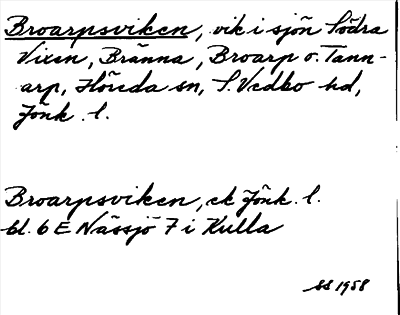 Broarpsviken, vik i sjön Södra
Vixen, Bränna, Broarp o. Tann-
arp, Höreda sn, S. Vedbo hd,
Jönk. l.
Broarpsviken, ek Jönk. l.
bl. 6 E Nässjö 7 i Kulla
SS 1958